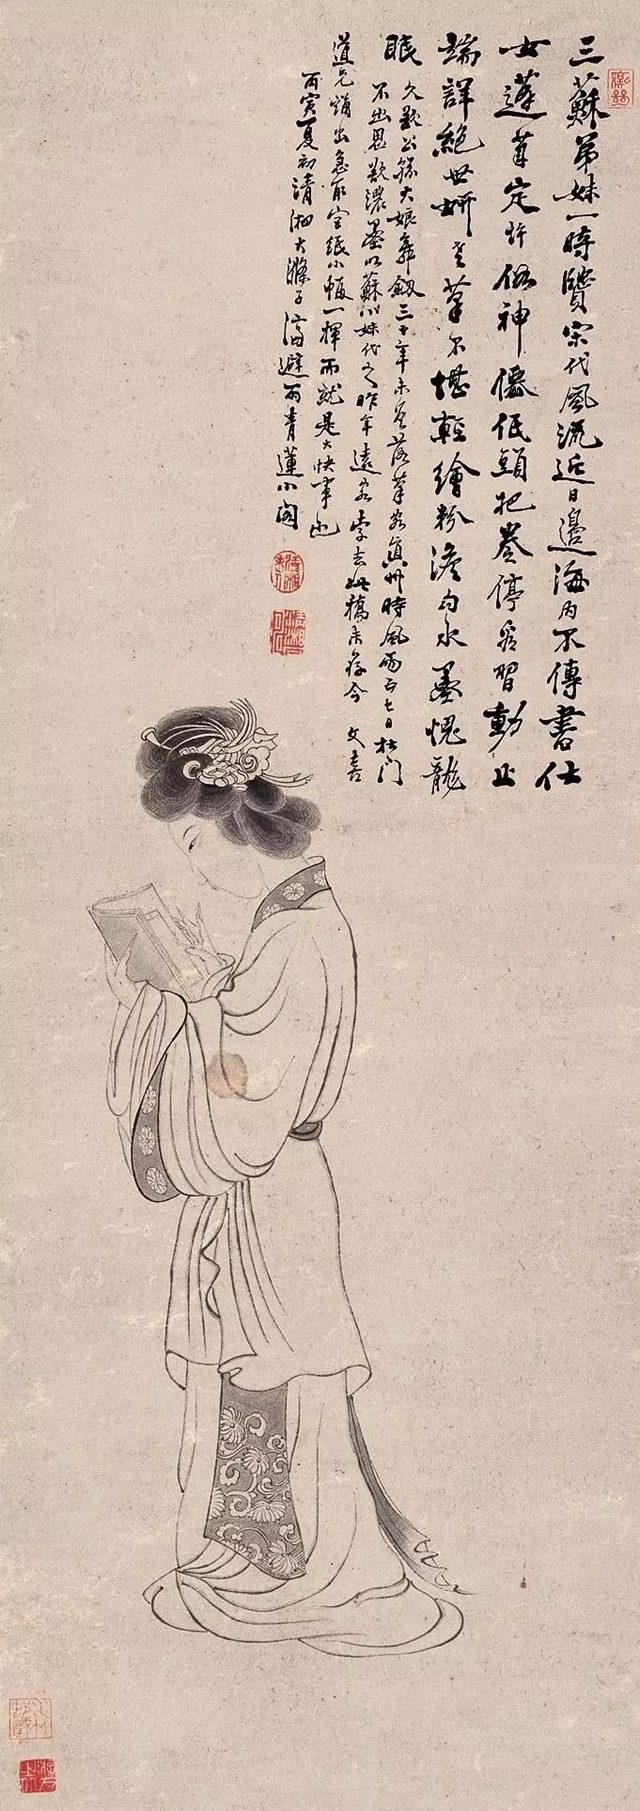 三蘇弟妹一時贒宋代風流近日邊海内不傳書仕
女蓬萊定許俗神僊低頭把卷停看習動止
端詳絕世妍老筆不堪輕繪粉澹勻水墨愧龍
眠 久欲公孫大娘舞劔三十年未曾落筆客真州時風雨五七日杜門
不出思欲濃墨以蘇小妹代之昨年遠客索去此稿未存今文喜
道兄出急取宣紙小幅一揮而就是大快事也
丙寅夏初清湘大滌子濟避雨青蓮小閣